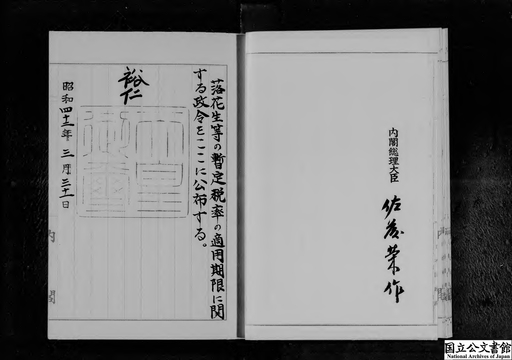 落花生等の暫定税率の適用期限に関
する政令をここに公布する。
裕仁
天皇御璽
昭和四十二年三月三十一日
内閣総理大臣 佐藤栄作
内閣
国立公文書館
National Archives of Japan